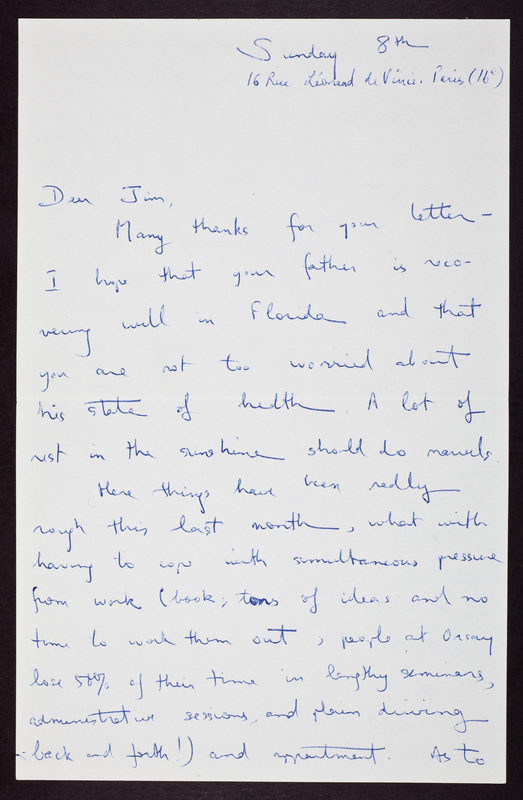 Sunday 8th
16 Rue Léonard de Vinci. Paris (16e)
Dear Jim,
Many thanks for your letter -
I hope that your father is reco-
vering well in Florida and that
you are not too worried about
his state of health. A lot of
rest in the sunshine should do marvels.
Here things have been really
rough this last month, what with
having to cope with simultaneous pressure
from work (book; tons of ideas and no
time to work them out; people at Orsay
lose 50% of their time in lengthy seminars,
administrative sessions, and plain driving
back and forth!) and appartment. As to